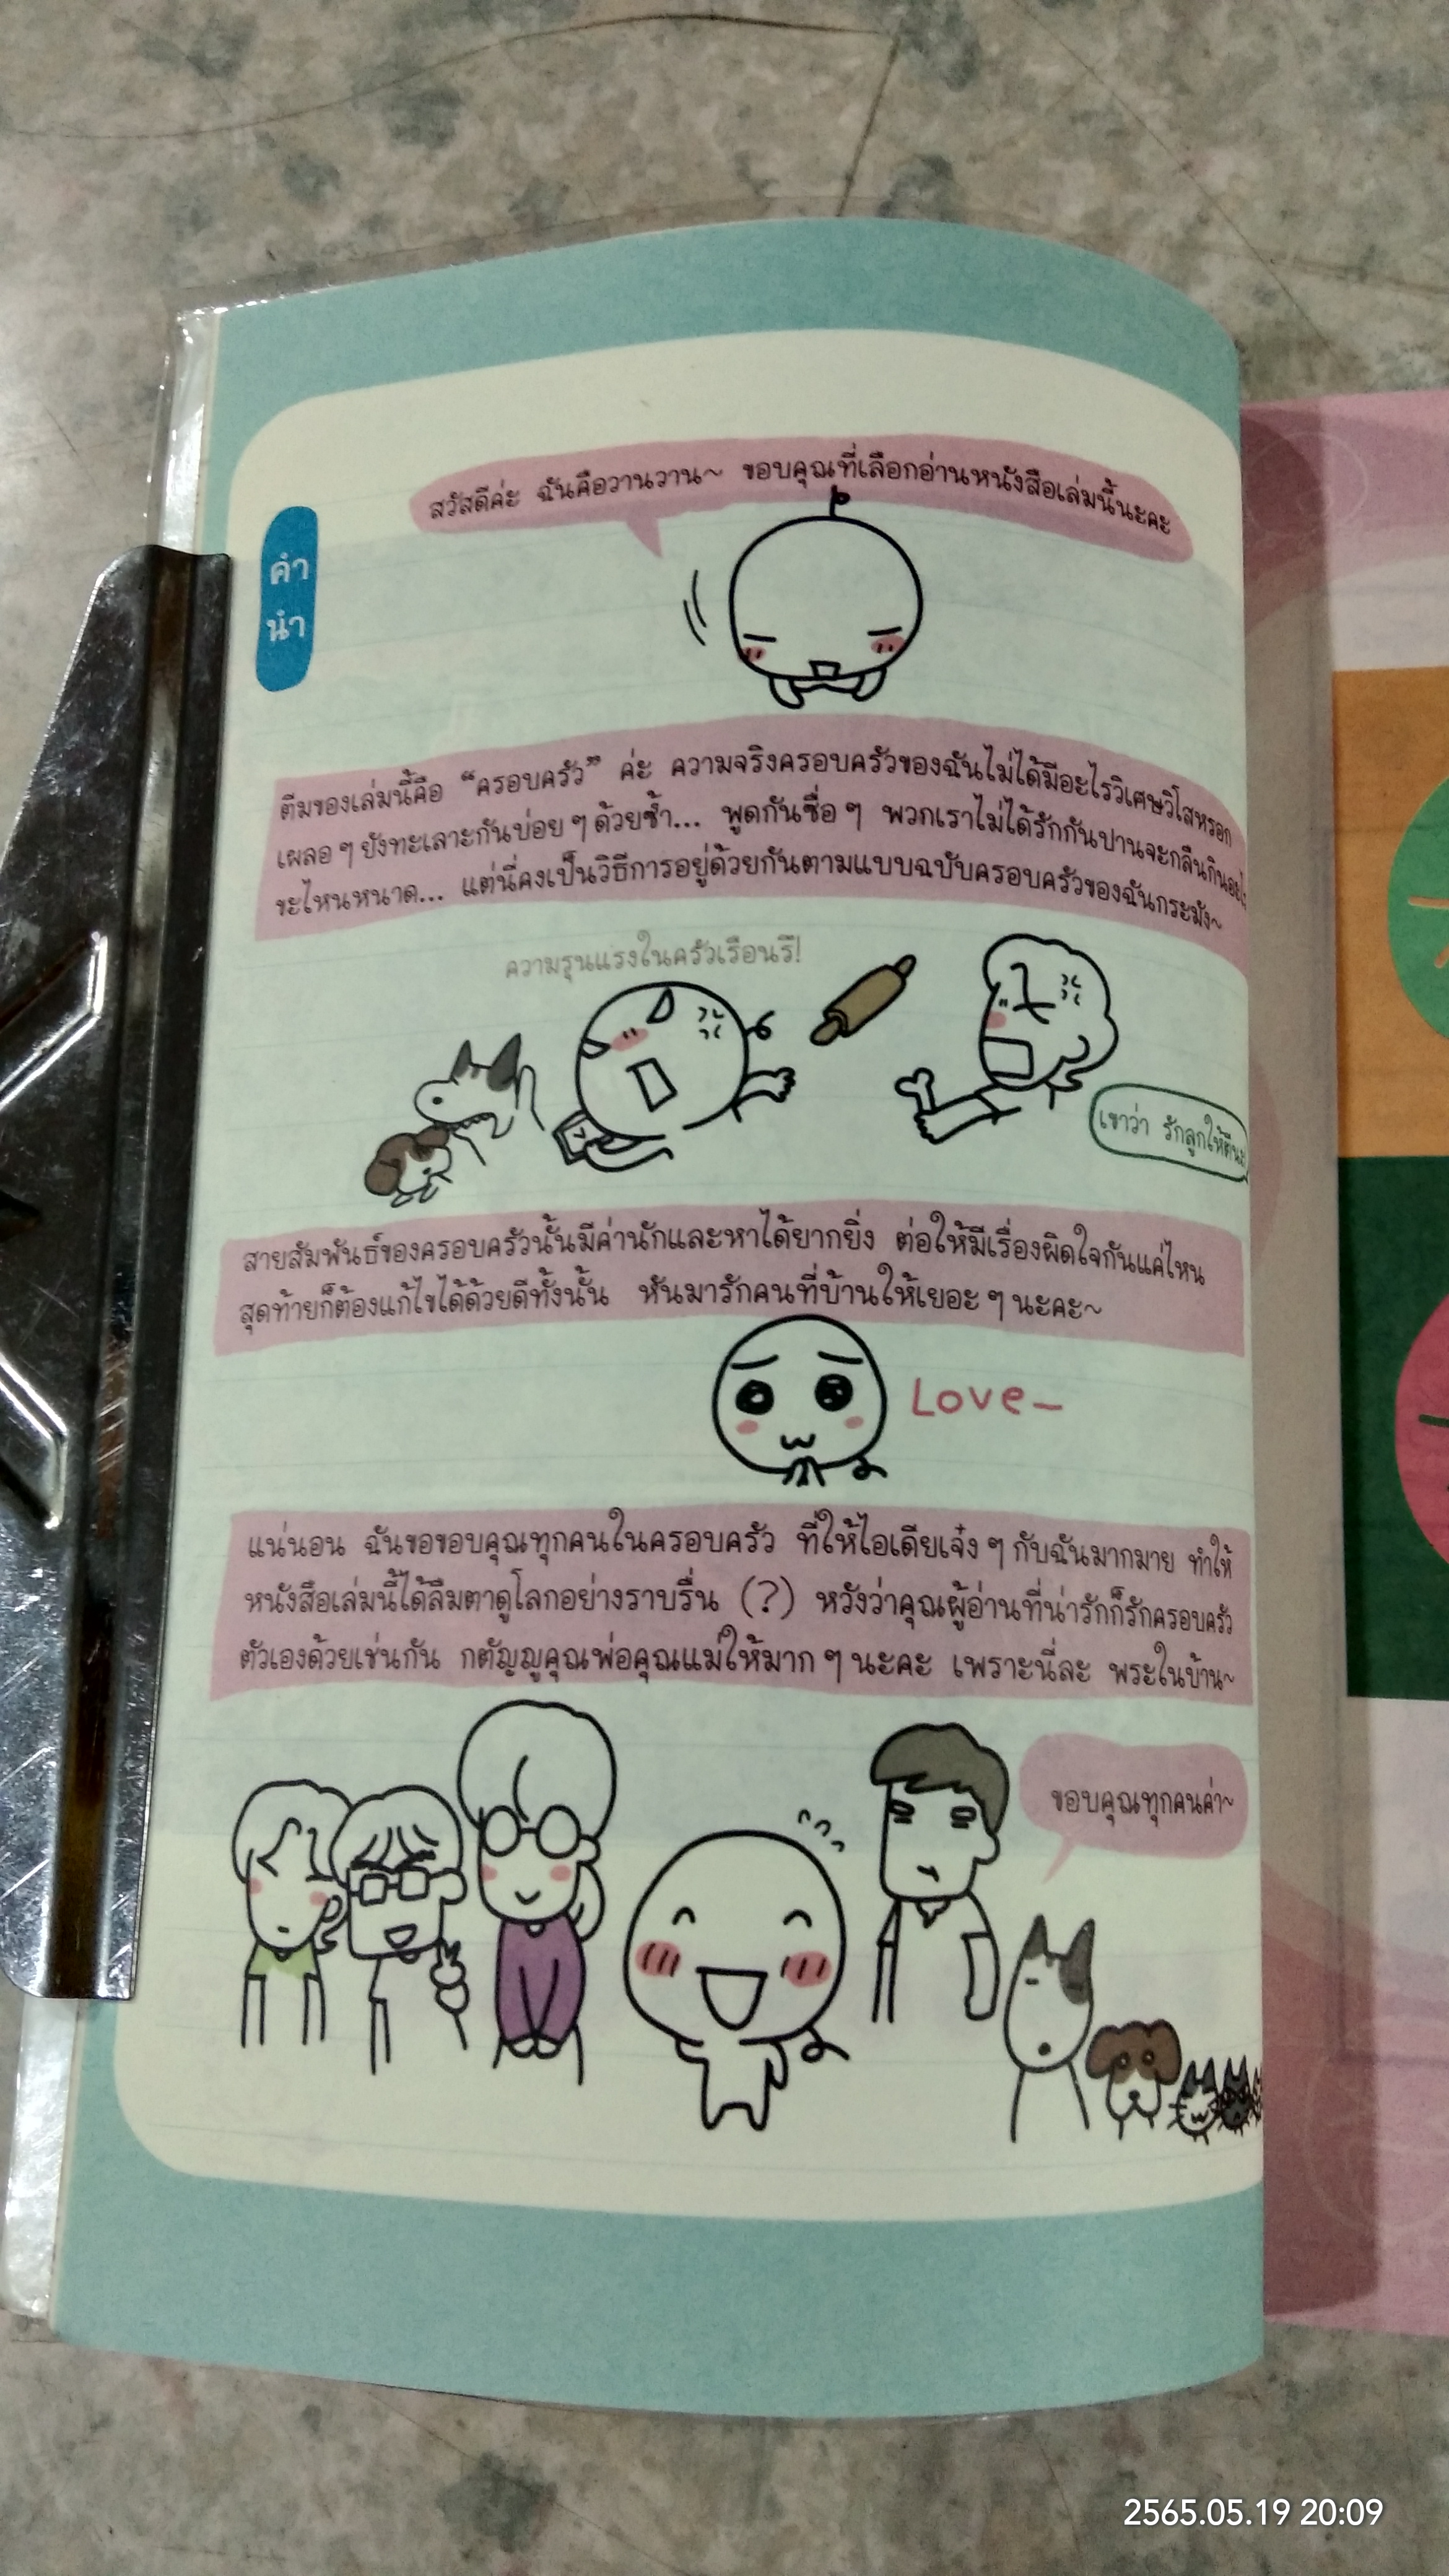 คำ
นำ
สวัสดีค่ะ ฉันคือวานวาน~ ขอบคุณที่เลือกอ่านหนังสือเล่มนี้นะคะ
ตีมของเล่มนี้คือ “ครอบครัว” ค่ะ ความจริงครอบครัวของฉันไม่ได้มีอะไรวิเศษวิโสหรอก
เผลอ ๆ ยังทะเลาะกันบ่อย ๆ ด้วยซ้ำ... พูดกันซื่อ ๆ พวกเราไม่ได้รักกันปานจะกลืนกินอะไร
ขะไหนหนาด... แต่นี่คงเป็นวิธีการอยู่ด้วยกันตามแบบฉบับครอบครัวของฉันกระมัง~
ความรุนแรงในครัวเรือนรึ!
เขาว่า รักลูกให้ตีนะ
สายสัมพันธ์ของครอบครัวนั้นมีค่านักและหาได้ยากยิ่ง ต่อให้มีเรื่องผิดใจกันแค่ไหน
สุดท้ายก็ต้องแก้ไขได้ด้วยดีทั้งนั้น หันมารักคนที่บ้านให้เยอะ ๆ นะคะ~
Love~
แน่นอน ฉันขอขอบคุณทุกคนในครอบครัว ที่ให้ไอเดียเจ๋ง ๆ กับฉันมากมาย ทำให้
หนังสือเล่มนี้ได้ลืมตาดูโลกอย่างราบรื่น (?) หวังว่าคุณผู้อ่านที่น่ารักก็รักครอบครัว
ตัวเองด้วยเช่นกัน กตัญญูคุณพ่อคุณแม่ให้มาก ๆ นะคะ เพราะนี่ละ พระในบ้าน~
ขอบคุณทุกคนค่า~
2565.05.19 20:09